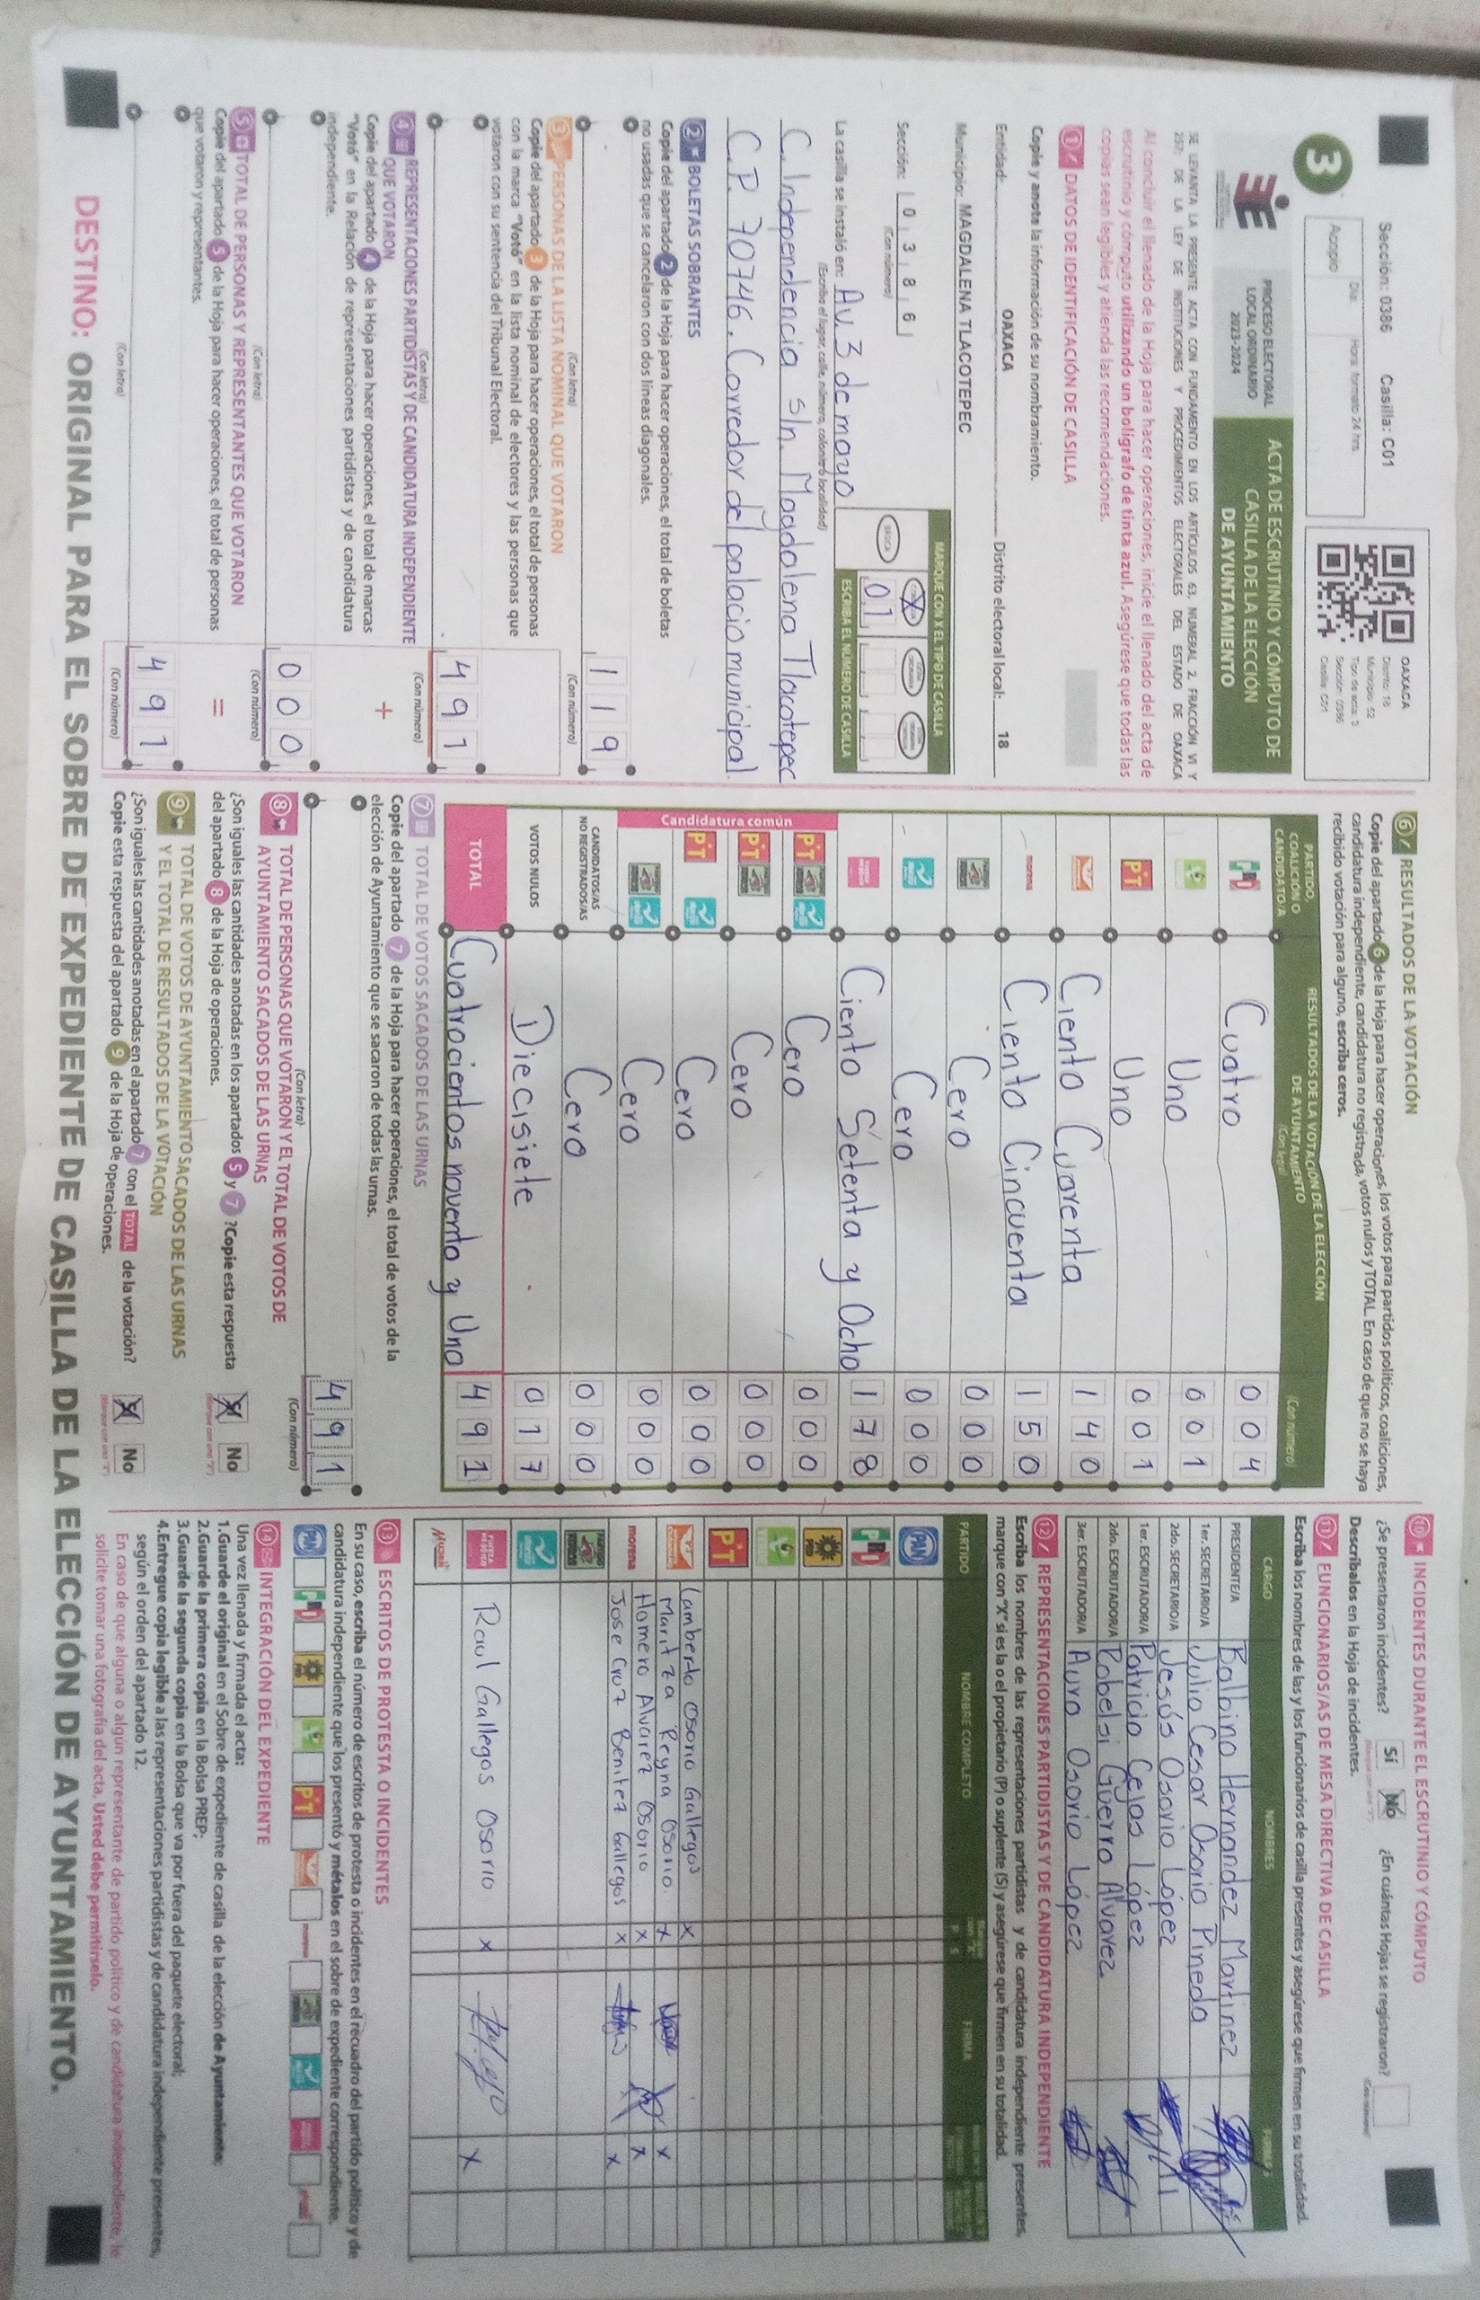 Sección: 0386 Casilla: C01
3
Acopio
Día:
Hora: formato 24 hrs
OAXACA
Distrito: 18
Municipio: 52
Tipo de acta: 3
Sección: 0386
Casilla: C01
PROCESO ELECTORAL
LOCAL ORDINARIO
2023-2024
ACTA DE ESCRUTINIO Y CÓMPUTO DE
CASILLA DE LA ELECCIÓN
DE AYUNTAMIENTO
SE LEVANTA LA PRESENTE ACTA CON FUNDAMENTO EN LOS ARTÍCULOS 63, NUMERAL 2, FRACCIÓN VI Y
257; DE LA LEY DE INSTITUCIONES Y PROCEDIMIENTOS ELECTORALES DEL ESTADO DE OAXACA
Al concluir el llenado de la Hoja para hacer operaciones, inicie el llenado del acta de
escrutinio y cómputo utilizando un bolígrafo de tinta azul. Asegúrese que todas las
copias sean legibles y atienda las recomendaciones.
1 DATOS DE IDENTIFICACIÓN DE CASILLA
Copie y anote la información de su nombramiento.
Entidad: OAXACA Distrito electoral local: 18
Municipio: MAGDALENA TLACOTEPEC
Sección: 0 3 8 6
(Con número)
MARQUE CON X EL TIPO DE CASILLA
BÁSICA X
ESCRIBA EL NÚMERO DE CASILLA
0 1
La casilla se instaló en: Av. 3 de mayo
(Escriba el lugar, calle, número, colonia o localidad)
C. Independencia s/n. Magdalena Tlacotepec
C.P. 70746. Corredor del palacio municipal.
2 BOLETAS SOBRANTES
Copie del apartado 2 de la Hoja para hacer operaciones, el total de boletas
no usadas que se cancelaron con dos líneas diagonales.
1 1 9
(Con letra) (Con número)
3 PERSONAS DE LA LISTA NOMINAL QUE VOTARON
Copie del apartado 3 de la Hoja para hacer operaciones, el total de personas
con la marca "Votó" en la lista nominal de electores y las personas que
votaron con su sentencia del Tribunal Electoral.
4 9 1
(Con letra) (Con número)
4 REPRESENTACIONES PARTIDISTAS Y DE CANDIDATURA INDEPENDIENTE
QUE VOTARON
Copie del apartado 4 de la Hoja para hacer operaciones, el total de marcas
"Votó" en la Relación de representaciones partidistas y de candidatura
independiente.
+
0 0 0
(Con letra) (Con número)
5 TOTAL DE PERSONAS Y REPRESENTANTES QUE VOTARON
Copie del apartado 5 de la Hoja para hacer operaciones, el total de personas
que votaron y representantes.
=
4 9 1
(Con letra) (Con número)
6 RESULTADOS DE LA VOTACIÓN
Copie del apartado 6 de la Hoja para hacer operaciones, los votos para partidos políticos, coaliciones,
candidatura independiente, candidatura no registrada, votos nulos y TOTAL. En caso de que no se haya
recibido votación para alguno, escriba ceros.
PARTIDO,
COALICIÓN O
CANDIDATO/A
RESULTADOS DE LA VOTACIÓN DE LA ELECCIÓN
DE AYUNTAMIENTO
(Con letra) (Con número)
PRI Cuatro 0 0 4
Uno 0 0 1
PT Uno 0 0 1
Ciento Cuarenta 1 4 0
morena Ciento Cincuenta 1 5 0
Cero 0 0 0
Cero 0 0 0
Ciento Setenta y Ocho 1 7 8
Candidatura común
PT Cero 0 0 0
PT Cero 0 0 0
PT Cero 0 0 0
Cero 0 0 0
CANDIDATOS/AS
NO REGISTRADOS/AS Cero 0 0 0
VOTOS NULOS Diecisiete 0 1 7
TOTAL Cuatrocientos noventa y Uno 4 9 1
7 TOTAL DE VOTOS SACADOS DE LAS URNAS
Copie del apartado 7 de la Hoja para hacer operaciones, el total de votos de la
elección de Ayuntamiento que se sacaron de todas las urnas.
4 9 1
(Con letra) (Con número)
8 TOTAL DE PERSONAS QUE VOTARON Y EL TOTAL DE VOTOS DE
AYUNTAMIENTO SACADOS DE LAS URNAS
¿Son iguales las cantidades anotadas en los apartados 5 y 7 ?Copie esta respuesta
del apartado 8 de la Hoja de operaciones.
Sí No
9 TOTAL DE VOTOS DE AYUNTAMIENTO SACADOS DE LAS URNAS
Y EL TOTAL DE RESULTADOS DE LA VOTACIÓN
¿Son iguales las cantidades anotadas en el apartado 7 con el TOTAL de la votación?
Copie esta respuesta del apartado 9 de la Hoja de operaciones.
Sí No
10 INCIDENTES DURANTE EL ESCRUTINIO Y CÓMPUTO
¿Se presentaron incidentes? Sí No ¿En cuántas Hojas se registraron?
Descríbalos en la Hoja de incidentes.
11 FUNCIONARIOS/AS DE MESA DIRECTIVA DE CASILLA
Escriba los nombres de las y los funcionarios de casilla presentes y asegúrese que firmen en su totalidad.
CARGO NOMBRES FIRMAS
PRESIDENTE/A Balbino Hernandez Martinez
1er. SECRETARIO/A Julio Cesar Osorio Pineda
2do. SECRETARIO/A Jesús Osorio López
1er. ESCRUTADOR/A Patricia Cejas López
2do. ESCRUTADOR/A Robelsi Guerra Alvarez
3er. ESCRUTADOR/A Aura Osorio López
12 REPRESENTACIONES PARTIDISTAS Y DE CANDIDATURA INDEPENDIENTE
Escriba los nombres de las representaciones partidistas y de candidatura independiente presentes,
marque con "X" si es la o el propietario (P) o suplente (S) y asegúrese que firmen en su totalidad.
PARTIDO NOMBRE COMPLETO P S FIRMA
PAN
PRI
PRD
PT
Lamberto Osorio Gallegos X
Maritza Reyna Osorio. X X
morena Homero Alvarez Osorio X X
Jose Cruz Benitez Gallegos X X
Raul Gallegos Osorio X X
13 ESCRITOS DE PROTESTA O INCIDENTES
En su caso, escriba el número de escritos de protesta o incidentes en el recuadro del partido político y de
candidatura independiente que los presentó y métalos en el sobre de expediente correspondiente.
PAN PRI PRD PT morena
14 INTEGRACIÓN DEL EXPEDIENTE
Una vez llenada y firmada el acta:
1.Guarde el original en el Sobre de expediente de casilla de la elección de Ayuntamiento;
2.Guarde la primera copia en la Bolsa PREP;
3.Guarde la segunda copia en la Bolsa que va por fuera del paquete electoral;
4.Entregue copia legible a las representaciones partidistas y de candidatura independiente presentes,
según el orden del apartado 12.
En caso de que alguna o algún representante de partido político y de candidatura independiente, le
solicite tomar una fotografía del acta. Usted debe permitírselo.
DESTINO: ORIGINAL PARA EL SOBRE DE EXPEDIENTE DE CASILLA DE LA ELECCIÓN DE AYUNTAMIENTO.